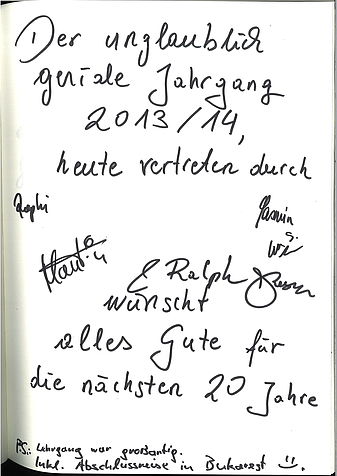 Der unglaublich
geniale Jahrgang
2013/14,
heute vertreten durch
Raphi
Yasmin
& Ralph
wünscht
alles Gute für
die nächsten 20 Jahre
PS.: Lehrgang war großartig.
Inkl. Abschlussreise in Bukarest